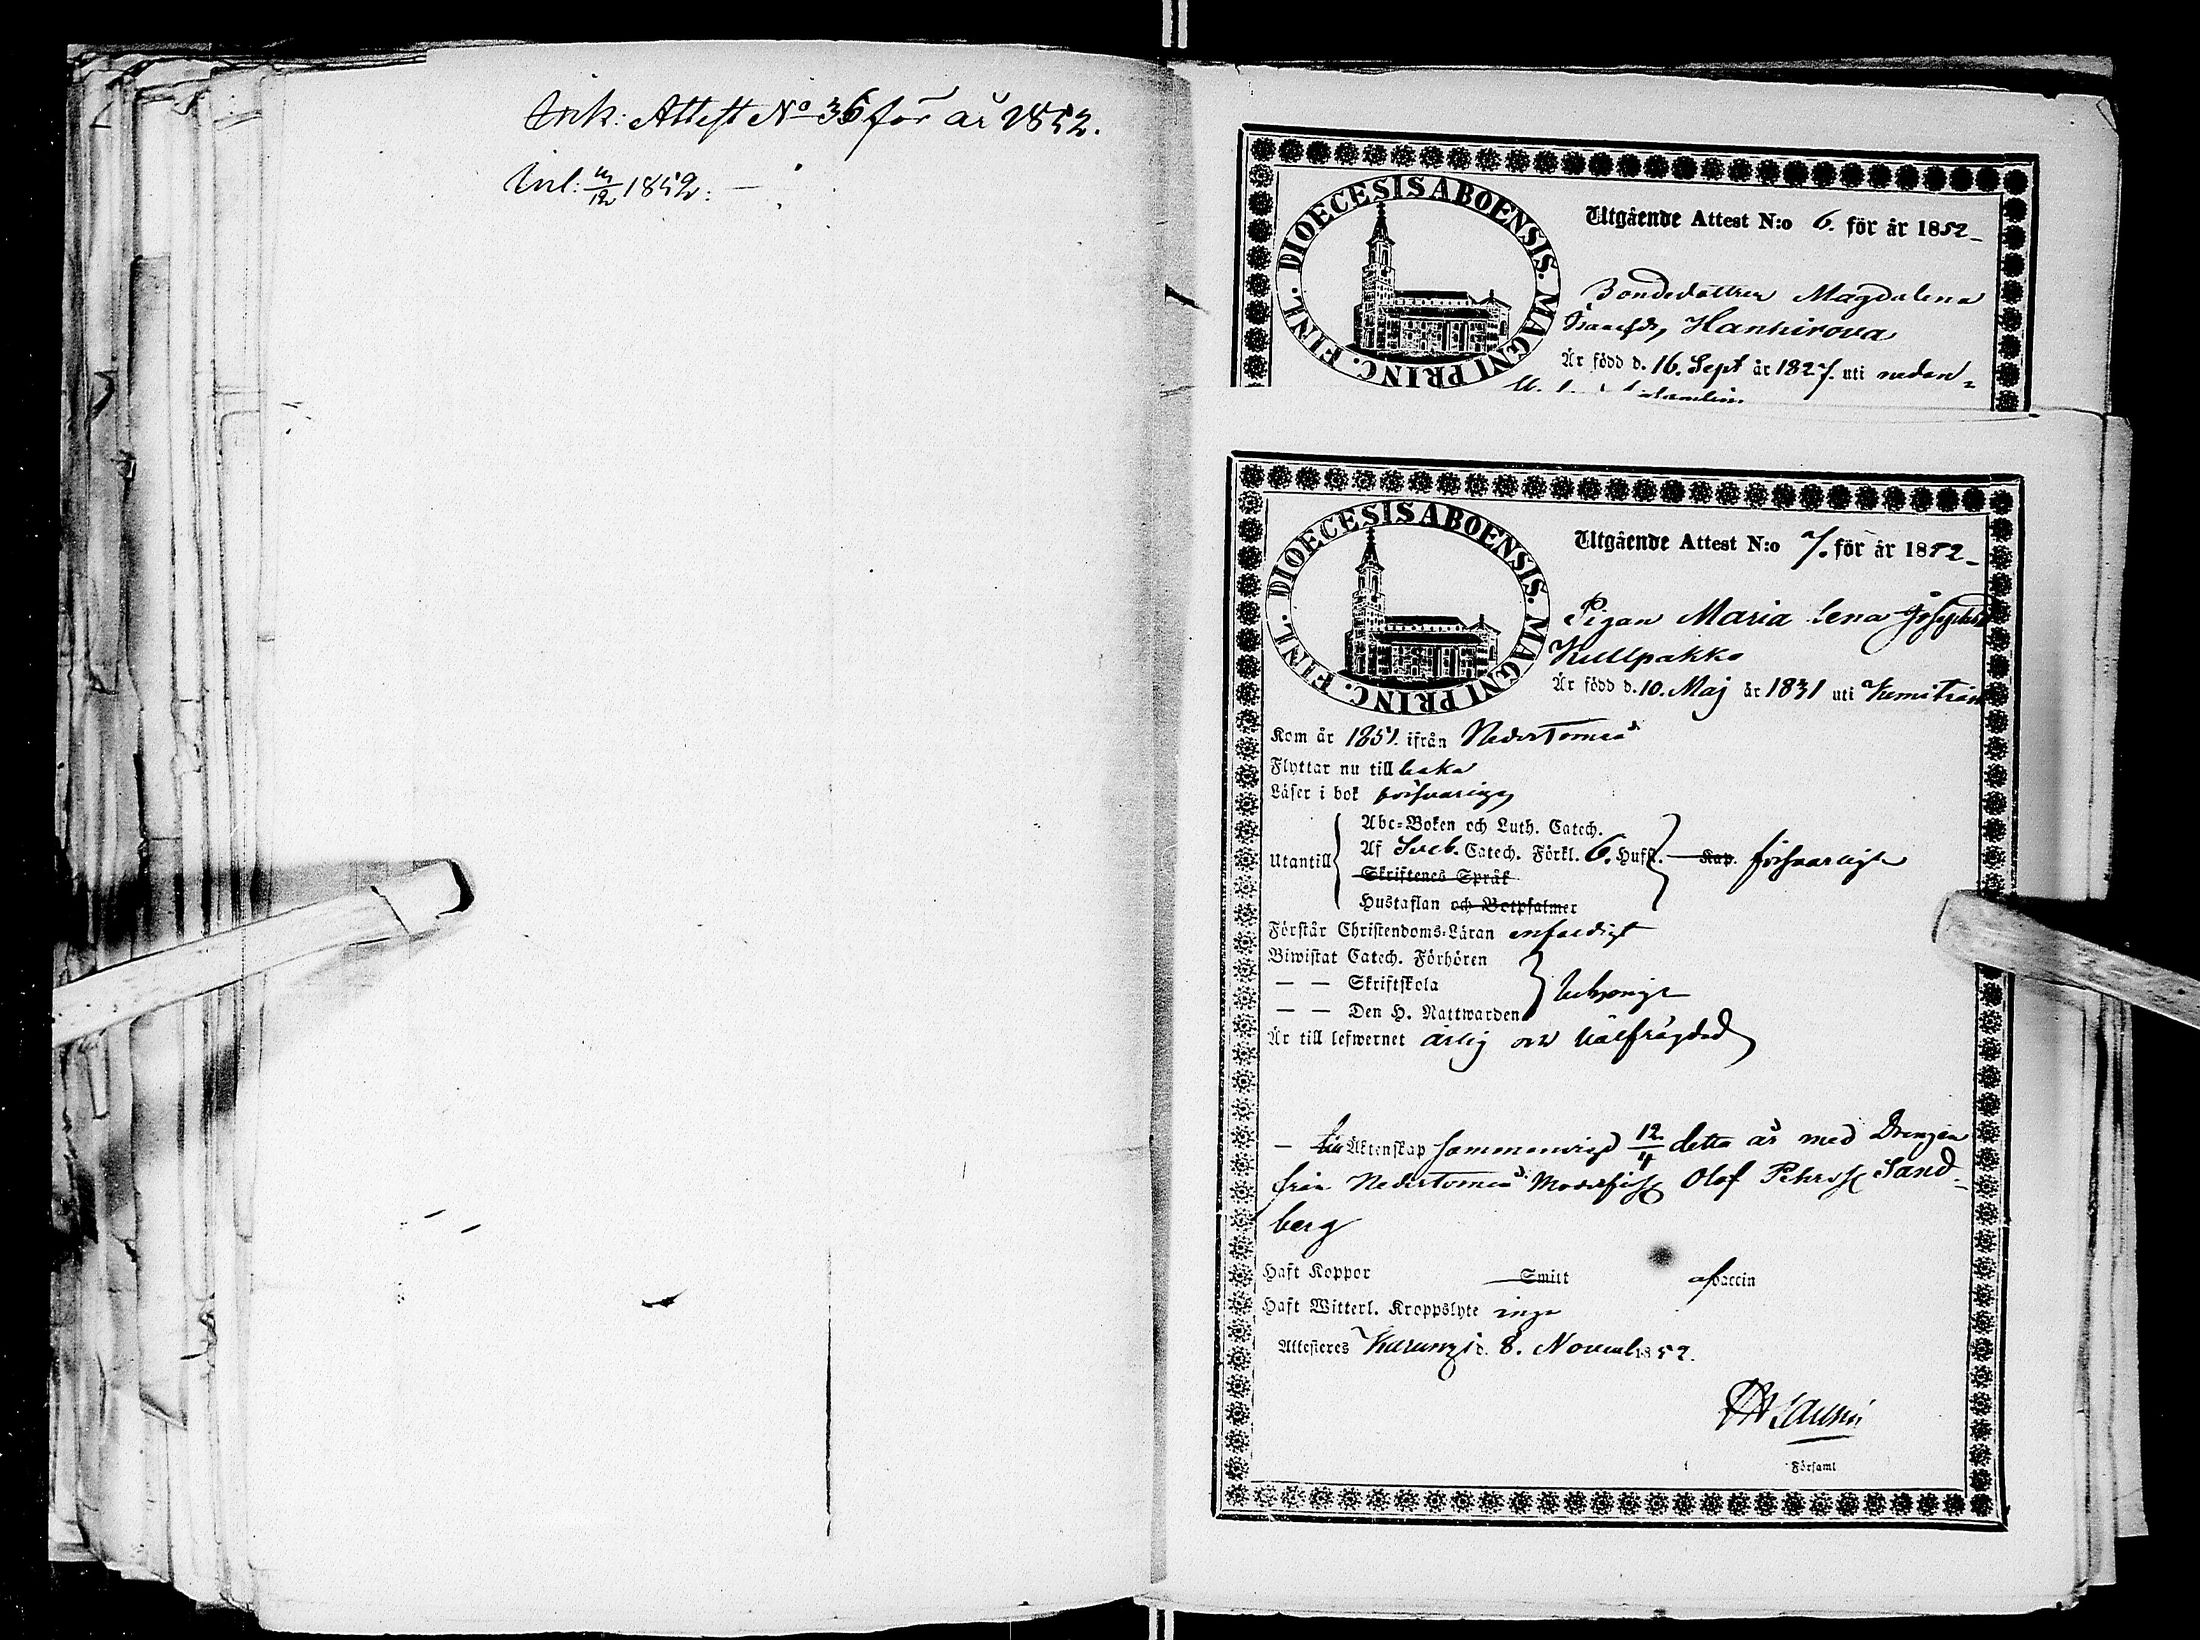 Ank: Attest No 36 för år 1852.
Inl: 1852.
DIOECESIS ABOENSIS. MAGNI PRINC. FINL.
Utgående Attest N:o 6. för år 1852
Bondedottren Magdalena
Hanhirova
Är född d. 16. Sept år 1827. uti nedan-
DIOECESIS ABOENSIS. MAGNI PRINC. FINL.
Utgående Attest N:o 7. för år 1852
Pigan Maria Lena Josephsd
Kullpakko
Är född d. 10. Maj år 1831 uti Kemiträsk
Kom år 1851. ifrån NederTorneå
Flyttar nu tillbaka
Läser i bok försvarligt
Abc-Boken och Luth. Catech.
Utantill Af Sveb. Catech. Förkl. 6. Hufst. Kap. försvarligt
Skriftenes Språk
Hustaflan och Botpsalmer
Förstår Christendoms-Läran enfaldigt
Biwistat Catech. Förhören
— — Skriftskola behörigt
— — Den H. Nattwarden
Är till lefwernet ärlig och välfrägdad
— till Äktenskap sammanvigd 12/4 detta år med Drengen
från NederTorneå Olof Pehrss Sand-
berg
Haft Koppor Smitt af vaccin
Haft Witterl. Kroppslyte inga
Attesteres Karungi d. 8. Novemb 1852.
Församl